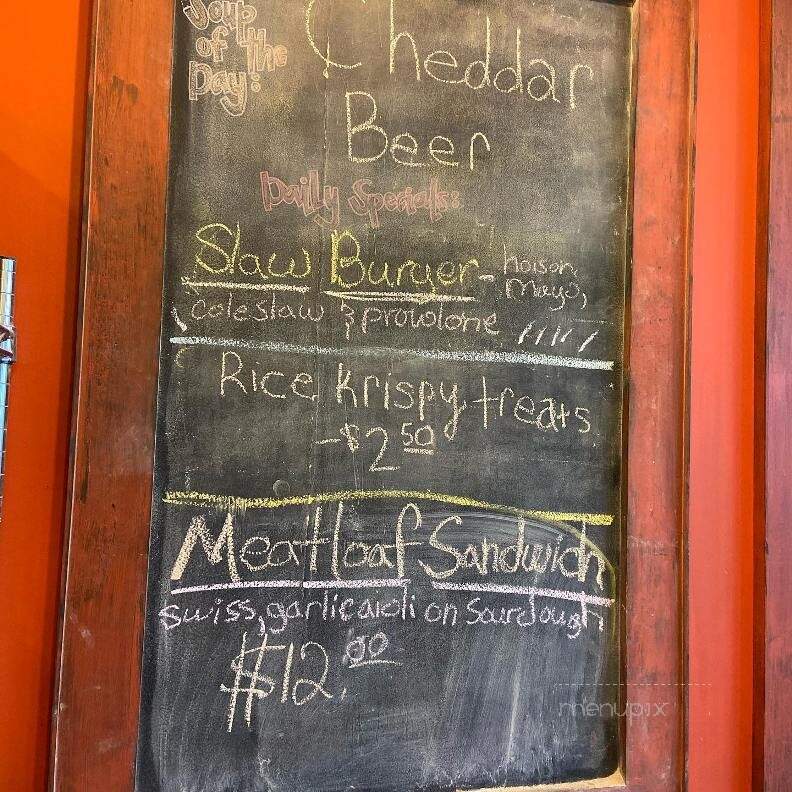 Soup
of the
Day:
Cheddar
Beer
Daily Specials:
Slaw Burger - hoison,
mayo,
coleslaw & provolone
Rice Krispy treats
- $2.50
Meatloaf Sandwich
swiss, garlic aioli on Sourdough
$12.00
menupix